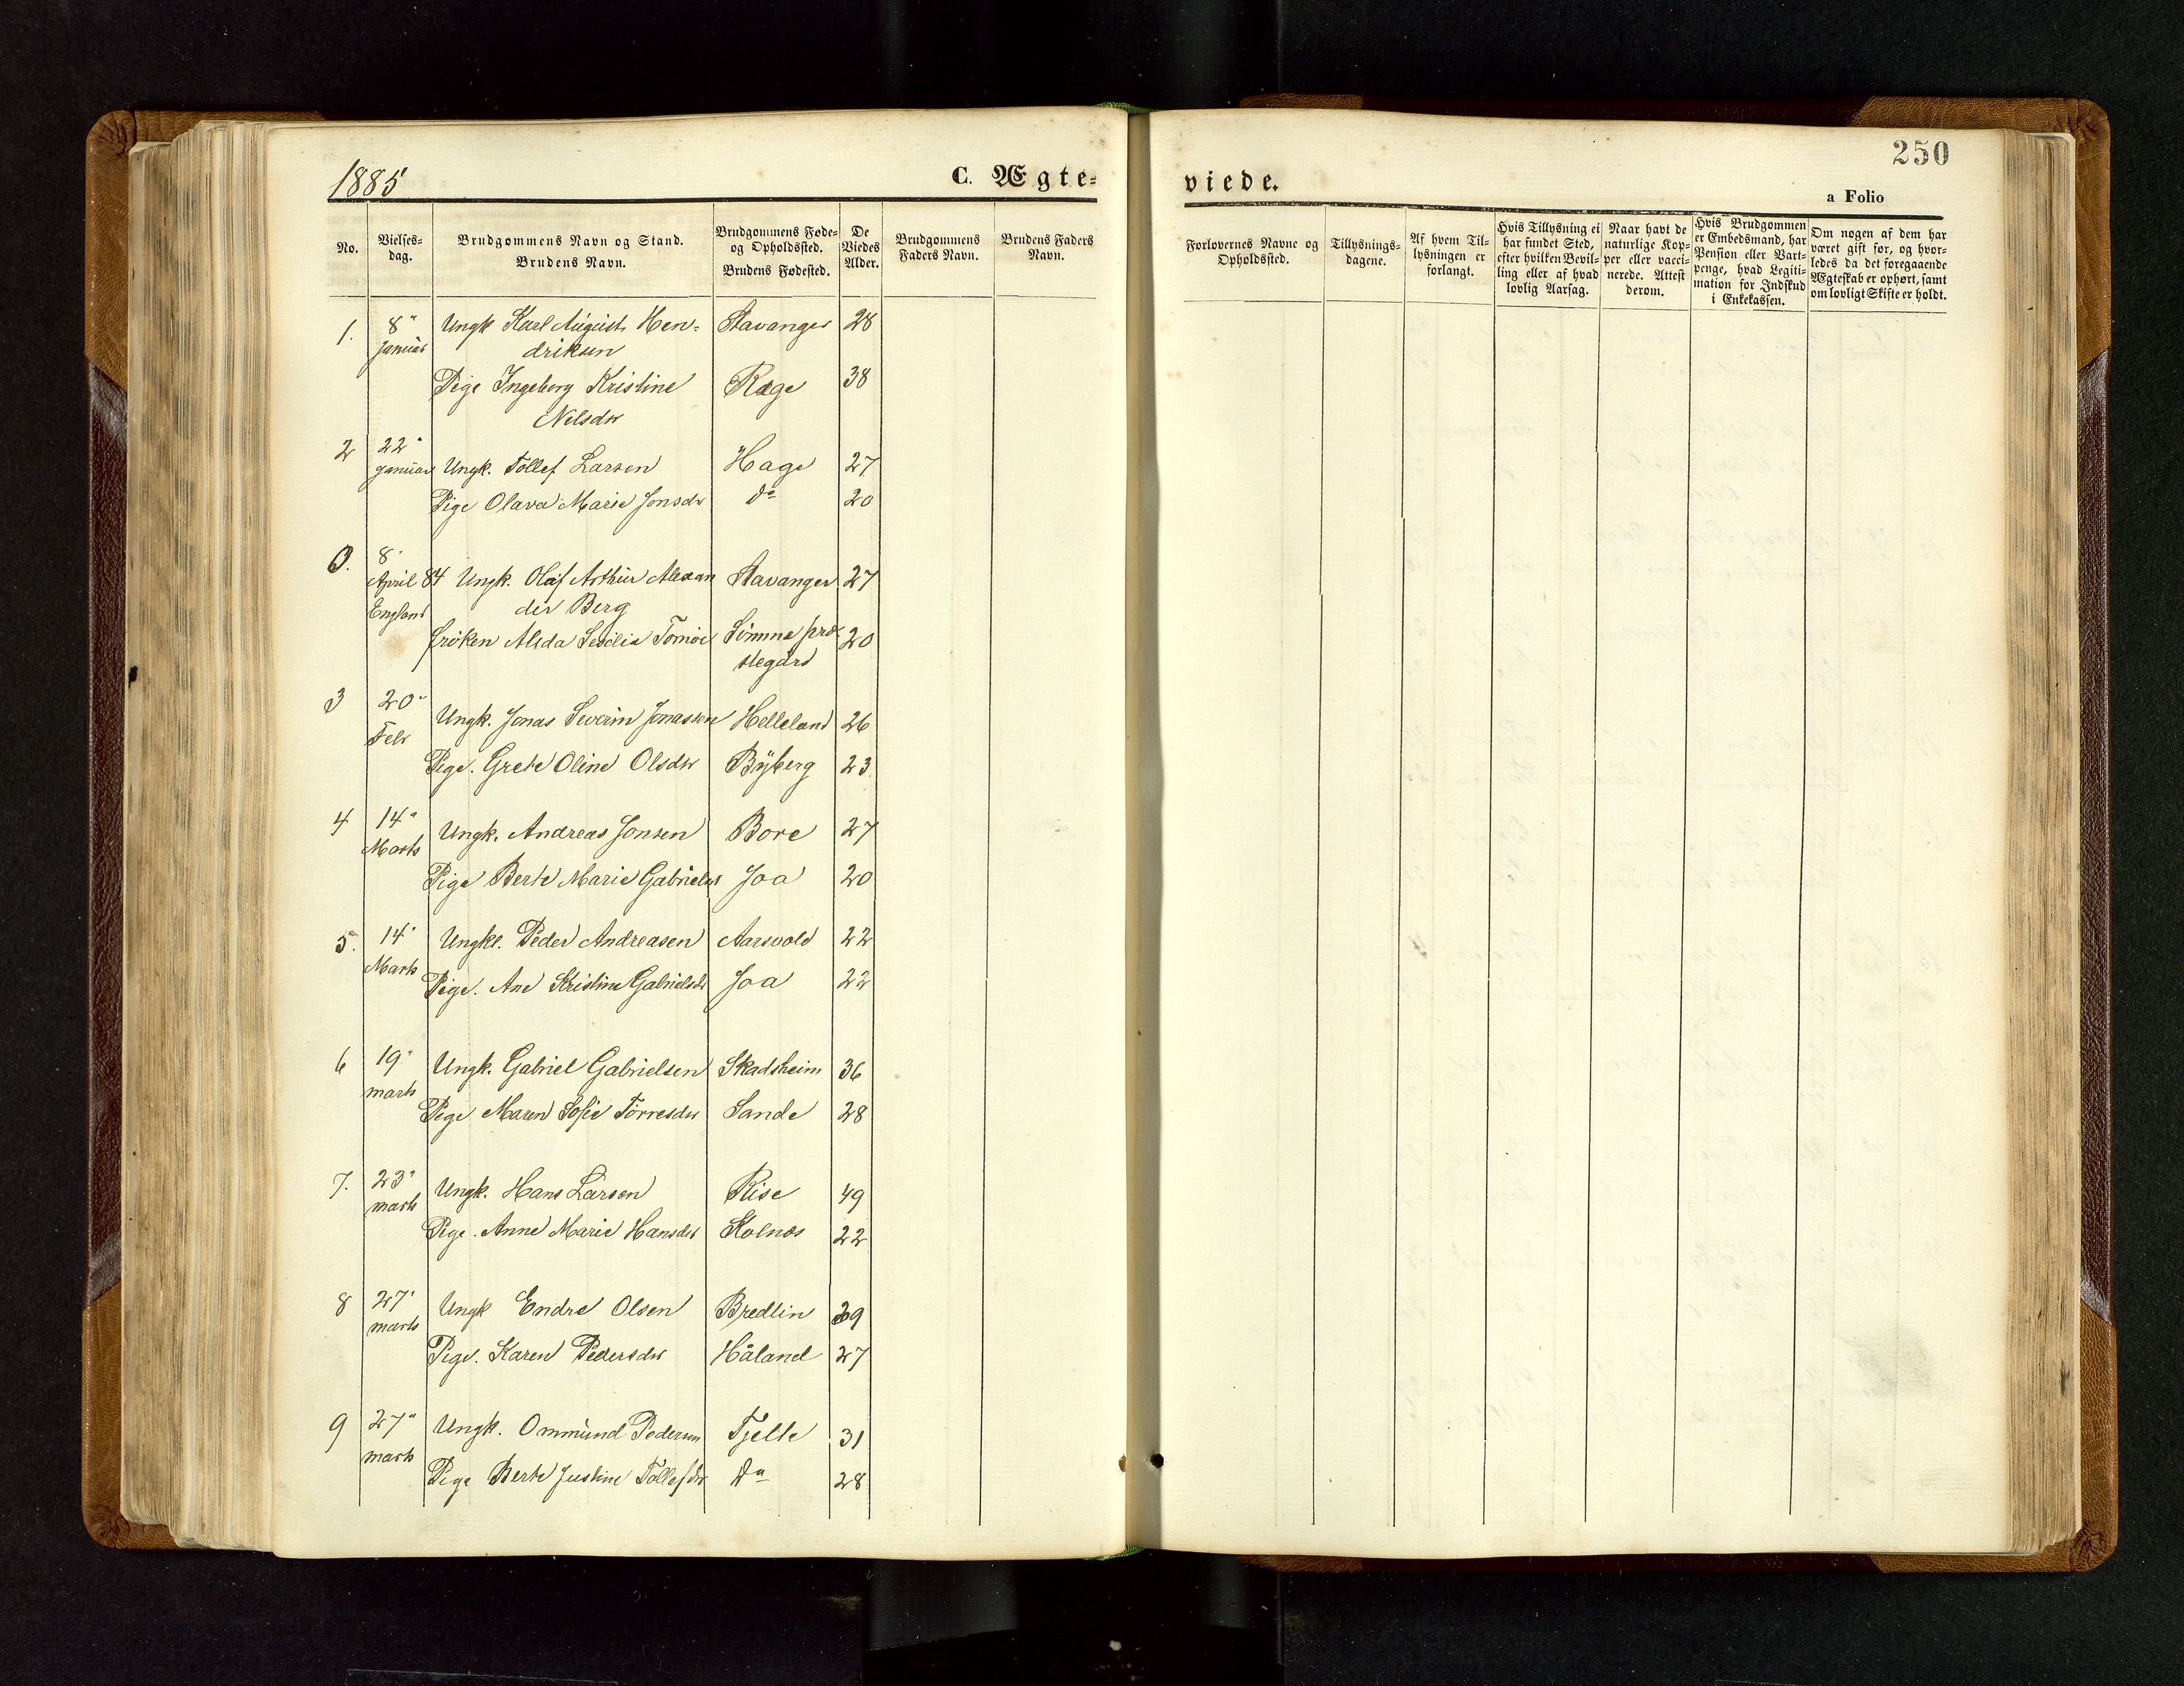 1885
C. Ægte-
viede.
250
a Folio
No.
Vielses-
dag.
Brudgommens Navn og Stand.
Brudens Navn.
Brudgommens Føde-
og Opholdssted.
Brudens Fødested.
De
Viedes
Alder.
Brudgommens
Faders Navn.
Brudens Faders
Navn.
Forlovernes Navne og
Opholdssted.
Tillysnings-
dagene.
Af hvem Til-
lysningen er
forlangt.
Hvis Tillysning ei
har fundet Sted,
efter hvilken Bevil-
ling eller af hvad
lovlig Aarsag.
Naar havt de
naturlige Kop-
per eller vacci-
nerede. Attest
derom.
Hvis Brudgommen
er Embedsmand, har
Pension eller Vart-
penge, hvad Legiti-
mation for Indskud
i Enkekassen.
Om nogen af dem har
været gift før, og hvor-
ledes da det foregaaende
Ægteskab er ophørt, samt
om lovligt Skifte er holdt.
1. 8" Ungk Karl August Hen- Stavanger 28
Januar driksen
Pige Ingeborg Kristine Rege 38
Nelsdtr
2 22"
Januar Ungk. Tollef Larsen Hage 27
Pige Olava Marie Jonsdtr do 20
0. 8"
April 84 Ungk. Olaf Arthur Alexan Stavanger 27
England der Berg
frøken Alida Tomøe Sømna præ- 20
stegård
3 20" Ungk. Jonas Severin Jonassen Helleland 26
Febr
Pige. Grete Oline Olsdtr Byberg 23
4 14" Ungk. Andreas Jonsen Bore 27
Marts
Pige Berte Marie Gabrielsdtr Joa 20
5. 14" Ungkl. Peder Andreasen Aarsvold 22
Marts
Pige. Ane Kristine Gabrielsdtr Joa 22
6 19" Ungk. Gabriel Gabrielsen Skadsheim 36
marts
Pige Maren Sofie Torresdtr Sande 28
7. 23" Ungk. Hans Larsen Rise 49
marts
Pige. Anne Marie Hansdtr Kolnes 22
8 27" Ungk Endre Olsen Bredlin 29
marts
Pige. Karen Pedersdtr Håland 27
9 27" Ungk. Ommund Pedersen Tjelte 31
marts
Pige Berte Justine Tollefsdtr Do 28